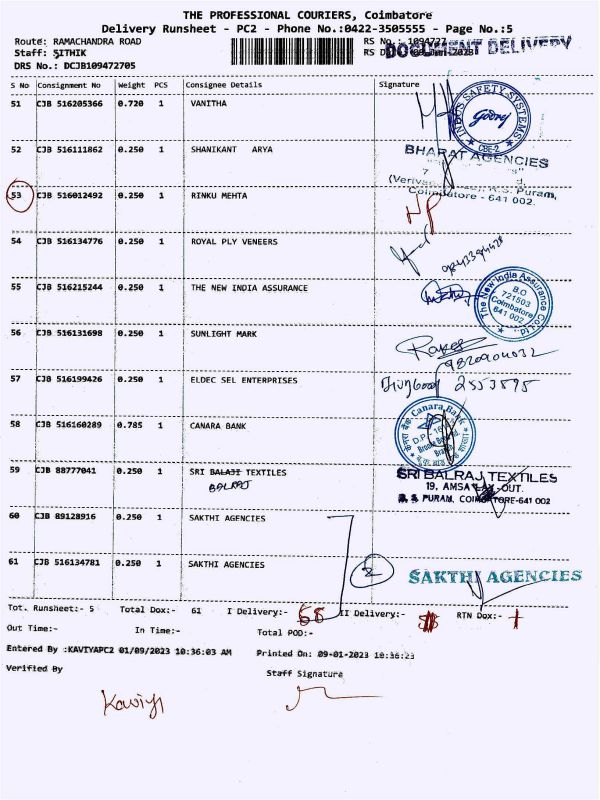 THE PROFESSIONAL COURIERS, Coimbatore
Delivery Runsheet - PC2 - Phone No.:0422-3505555 - Page No.:5
Route: RAMACHANDRA ROAD
RS No.: 1094727
Staff: SITHIK
DOCUMENT DELIVERY
DRS No.: DCJB109472705
S No Consignment No Weight PCS Consignee Details Signature
51 CJB 516205366 0.720 1 VANITHA
INDUS SAFETY SYSTEMS Godrej CBE-2
52 CJB 516111862 0.250 1 SHANIKANT ARYA
BHARAT AGENCIES
Puram,
Coimbatore - 641 002.
53 CJB 516012492 0.250 1 RINKU MEHTA
NP
54 CJB 516134776 0.250 1 ROYAL PLY VENEERS
55 CJB 516215244 0.250 1 THE NEW INDIA ASSURANCE
The New India Assurance Co. Ltd.
B.O
721503
Coimbatore
641 002
56 CJB 516131698 0.250 1 SUNLIGHT MARK
9820904032
57 CJB 516199426 0.250 1 ELDEC SEL ENTERPRISES
2553895
58 CJB 516160289 0.785 1 CANARA BANK
Canara Bank
59 CJB 88777041 0.250 1 SRI BALAJI TEXTILES
BALRAJ
SRI BALRAJ TEXTILES
19, AMSA LAY-OUT.
R. S. PURAM, COIMBATORE-641 002
60 CJB 89128916 0.250 1 SAKTHI AGENCIES
61 CJB 516134781 0.250 1 SAKTHI AGENCIES
2
SAKTHI AGENCIES
Tot. Runsheet:- 5 Total Dox:- 61 I Delivery:- II Delivery:- RTN Dox:- 1
Out Time:- In Time:- Total POD:-
Entered By :KAVIYAPC2 01/09/2023 10:36:03 AM Printed On: 09-01-2023 10:36:23
Verified By Staff Signature
Kaviya